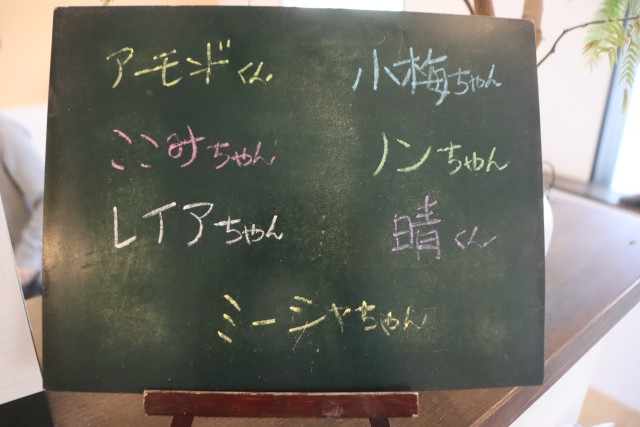 アーモンドくん
小梅ちゃん
ここみちゃん
ノンちゃん
レイアちゃん
晴くん
ミーシャちゃん